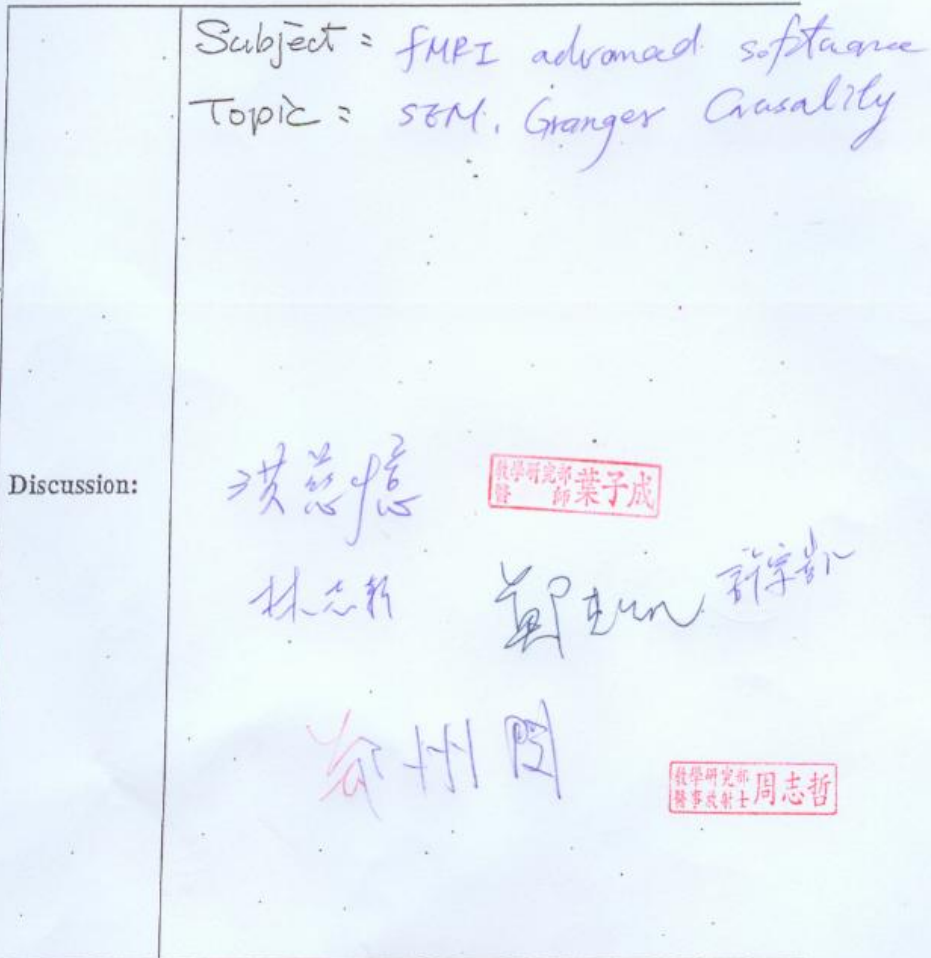 Subject : fMRI advanced software
Topic : SEM, Granger Causality
Discussion:
洪慈憶
教學研究部
醫 師 葉子成
林志新
鄭
許宗凱
州閔
教學研究部
醫事放射士 周志哲